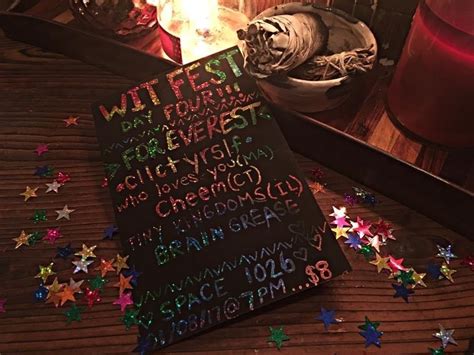 WIT FEST
DAY FOUR!!!
FOREVEREST
clctyrslf
who loves you (MA)
Cheem (CT)
TINY KINGDOMS (IL)
BRAIN GREASE
SPACE 1026
@ 7PM...$8